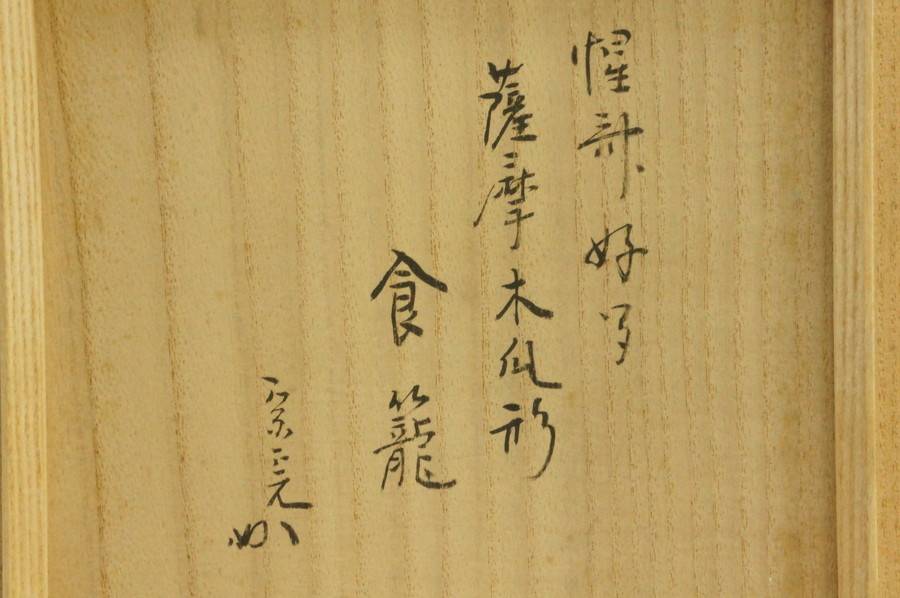 惺斎好写
薩摩木瓜形
食籠
宗